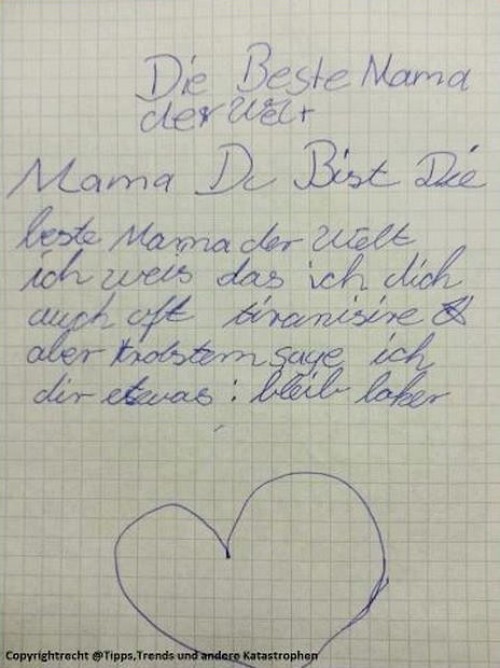 Die Beste Mama
der Welt
Mama Du Bist Die
beste Mama der Welt
ich weis das ich dich
auch oft tiranisire
aber trobstem sage ich
dir etwas: bleib loker
Copyrightracht @Tipps,Trends und andere Katastrophen